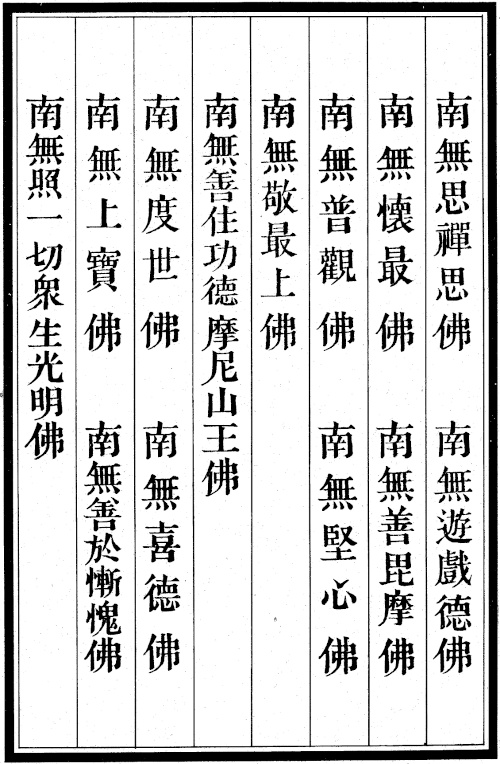 南無思禪思佛　南無遊戲德佛
南無懷最佛　南無善毘摩佛
南無普觀佛　南無堅心佛
南無敬最上佛
南無善住功德摩尼山王佛
南無度世佛　南無喜德佛
南無上寶佛　南無善於慚愧佛
南無照一切衆生光明佛